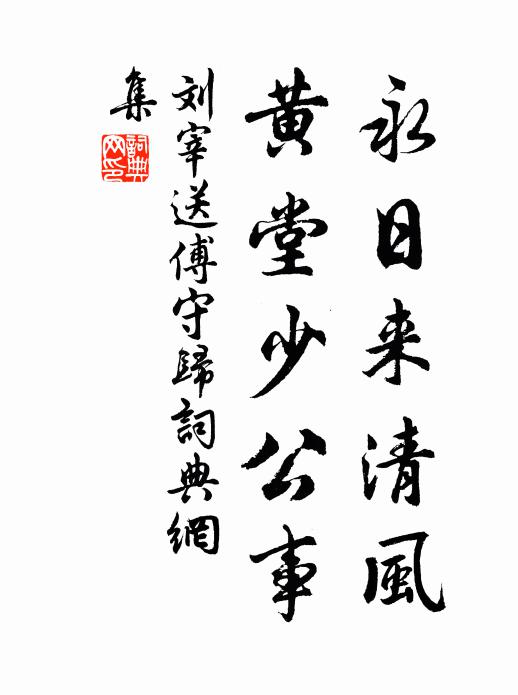 永日来清風
黄堂少公事
刘宰送傅守歸詞典網
集
詞典
网印